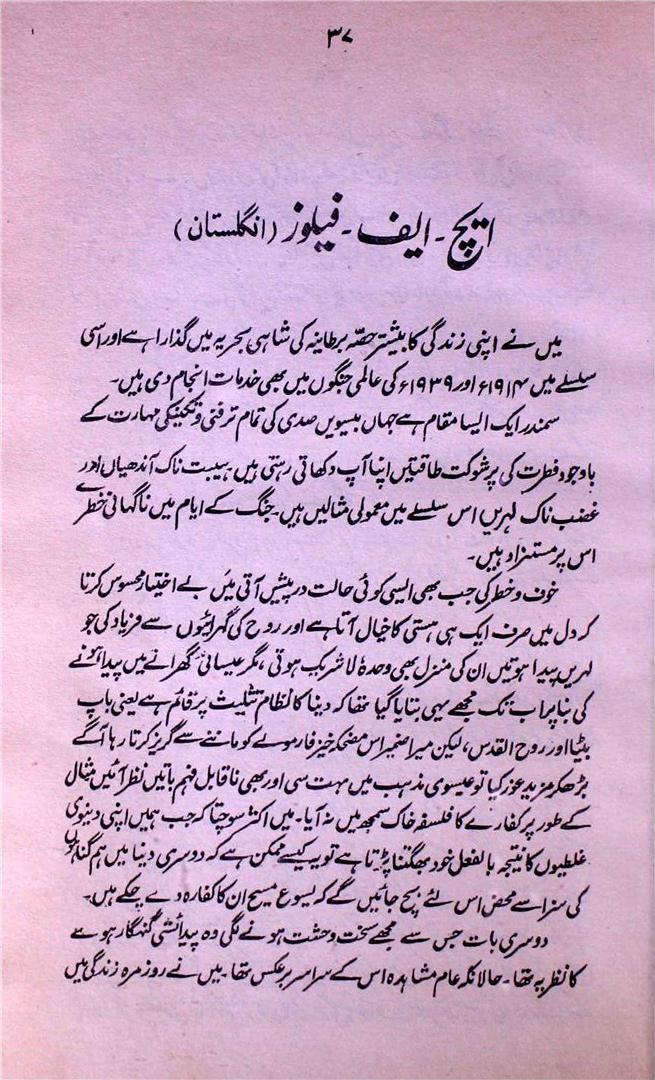 ۳۷
ایچ - ایف - فیلوز (انگلستان)
میں نے اپنی زندگی کا بیشتر حصہ برطانیہ کی شاہی بحریہ میں گذارا ہے اور اسی
سلسلے میں ۱۹۱۴ء اور ۱۹۳۹ء کی عالمی جنگوں میں بھی خدمات انجام دی ہیں۔
سمندر ایک ایسا مقام ہے جہاں بیسویں صدی کی تمام ترفنی و تکنیکی مہارت کے
باوجود فطرت کی پر شوکت طاقتیں اپنا آپ دکھاتی رہتی ہیں۔ ہیبت ناک آندھیاں اور
غضب ناک لہریں اس سلسلے میں معمولی مثالیں ہیں۔ جنگ کے ایام میں ناگہانی خطرے
اس پر مستزاد ہیں۔
خوف و خطر کی جب بھی ایسی کوئی حالت درپیش آتی میں بے اختیار محسوس کرتا
کہ دل میں صرف ایک ہی ہستی کا خیال آتا ہے اور روح کی گہرائیوں سے فریاد کی جو
لہریں پیدا ہوتیں ان کی منزل بھی وحدہٗ لا شریک ہوتی، مگر عیسائی گھرانے میں پیدا ہونے
کی بنا پر اب تک مجھے یہی بتایا گیا تھا کہ دنیا کا نظام تثلیث پر قائم ہے یعنی باپ
بیٹا اور روح القدس، لیکن میرا ضمیر اس مضحکہ خیز فارمولے کو ماننے سے گریز کرتا رہا آگے
بڑھ کر مزید غور کیا تو عیسوی مذہب میں بہت سی اور بھی ناقابل فہم باتیں نظر آئیں مثال
کے طور پر کفارے کا فلسفہ خاک سمجھ میں نہ آیا۔ میں اکثر سوچتا کہ جب ہمیں اپنی دنیوی
غلطیوں کا نتیجہ بالفعل خود بھگتنا پڑتا ہے تو یہ کیسے ممکن ہے کہ دوسری دنیا میں ہم گناہوں
کی سزا سے محض اس لئے بچ جائیں گے کہ یسوع مسیح ان کا کفارہ دے چکے ہیں۔
دوسری بات جس سے مجھے سخت وحشت ہونے لگی وہ پیدائشی گنہگار ہونے
کا نظریہ تھا۔ حالانکہ عام مشاہدہ اس کے سراسر برعکس تھا۔ میں نے روزمرہ زندگی میں